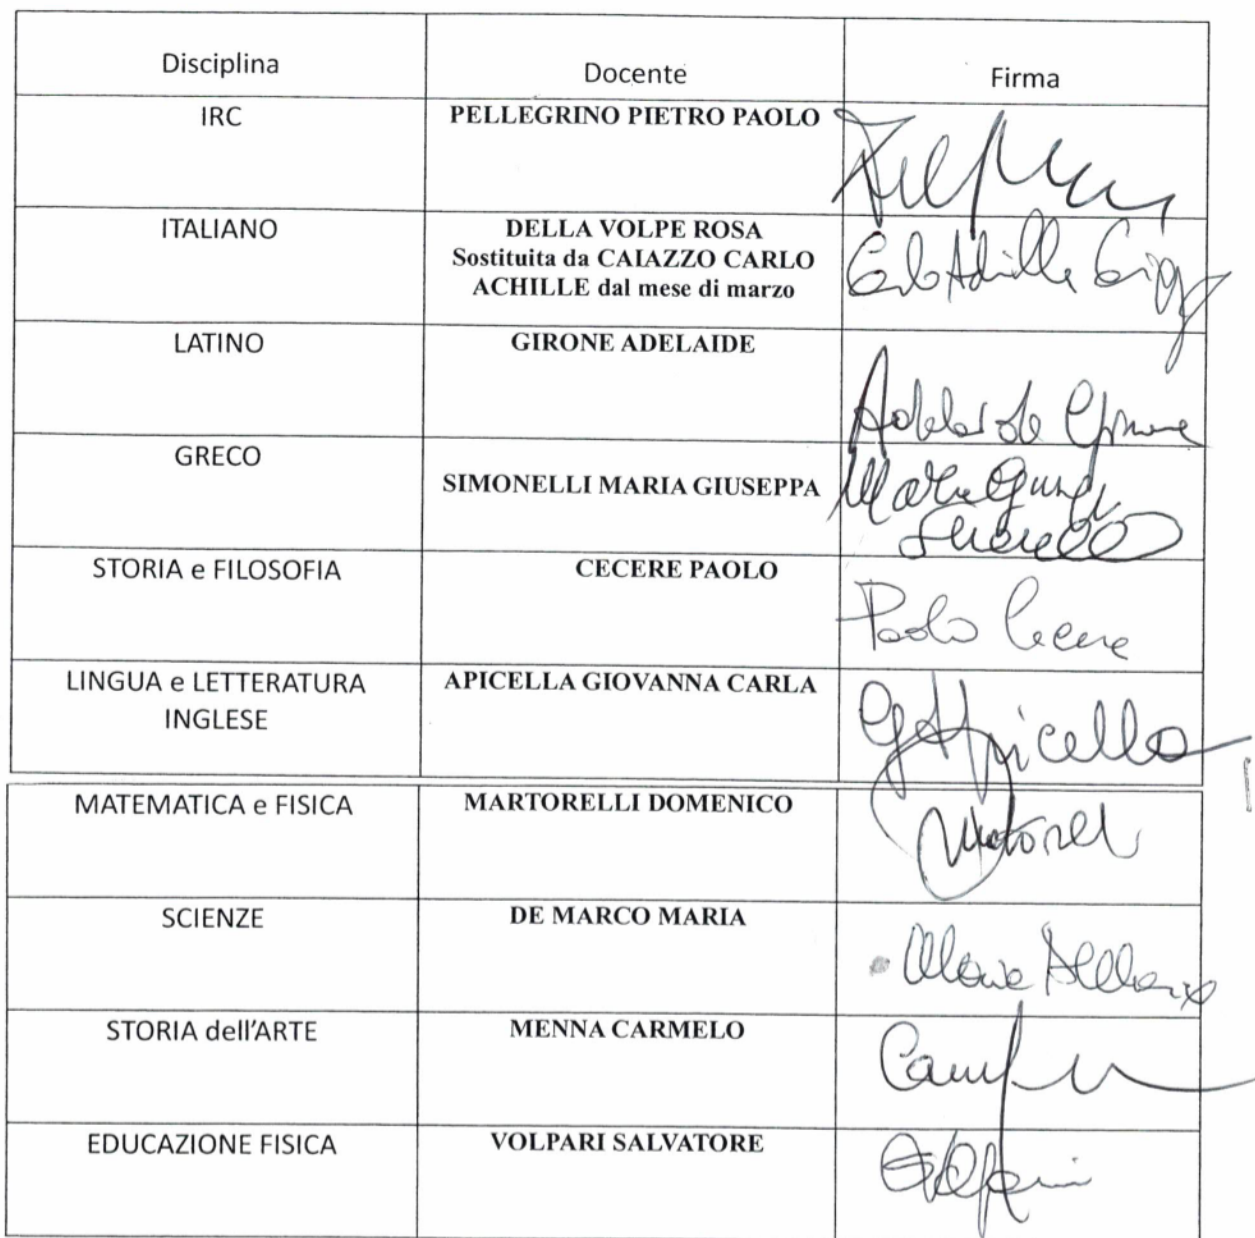 Disciplina Docente Firma
IRC PELLEGRINO PIETRO PAOLO
ITALIANO DELLA VOLPE ROSA
Sostituita da CAIAZZO CARLO
ACHILLE dal mese di marzo
Carlo Achille
LATINO GIRONE ADELAIDE
Adelaide Girone
GRECO
SIMONELLI MARIA GIUSEPPA
Maria
STORIA e FILOSOFIA CECERE PAOLO
Paolo Cecere
LINGUA e LETTERATURA APICELLA GIOVANNA CARLA
INGLESE
Apicella
MATEMATICA e FISICA MARTORELLI DOMENICO
SCIENZE DE MARCO MARIA
Maria
STORIA dell'ARTE MENNA CARMELO
EDUCAZIONE FISICA VOLPARI SALVATORE